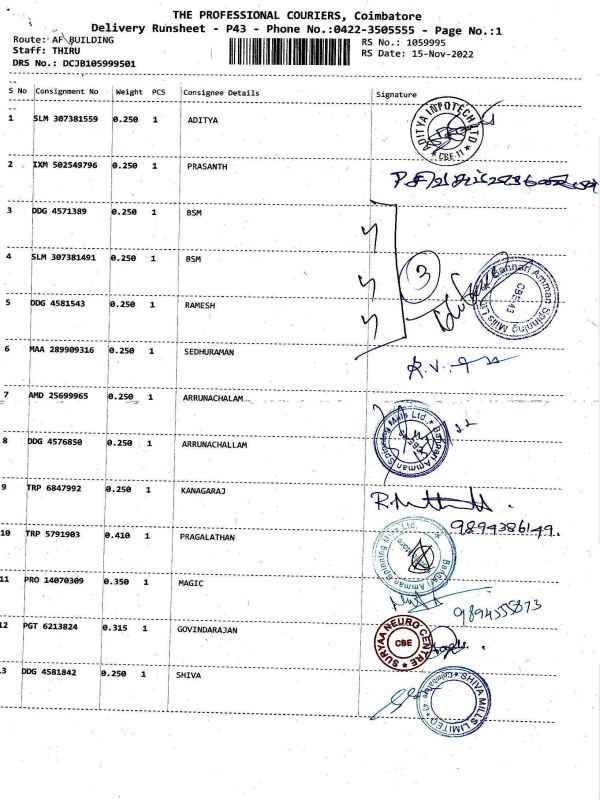 THE PROFESSIONAL COURIERS, Coimbatore
Delivery Runsheet - P43 - Phone No.:0422-3505555 - Page No.:1
Route: AF BUILDING
RS No.: 1059995
Staff: THIRU
RS Date: 15-Nov-2022
DRS No.: DCJB105999501
S No Consignment No Weight PCS Consignee Details Signature
1 SLM 307381559 0.250 1 ADITYA
ADITYA INFOTECH LTD
★ CBE-11 ★
2 IXM 502549796 0.250 1 PRASANTH
3 DDG 4571389 0.250 1 BSM
4 SLM 307381491 0.250 1 BSM
3
Bannari Amman Spinning Mills Ltd
CBE-43
5 DDG 4581543 0.250 1 RAMESH
6 MAA 289909316 0.250 1 SEDHURAMAN
R.V.
7 AMD 25699965 0.250 1 ARRUNACHALAM
Bannari Amman Spinning Mills Ltd.
8 DDG 4576850 0.250 1 ARRUNACHALLAM
9 TRP 6847992 0.250 1 KANAGARAJ
9894386149.
10 TRP 5791903 0.410 1 PRAGALATHAN
Bannari Amman Spinning Mills Ltd.
11 PRO 14070309 0.350 1 MAGIC
9894555873
12 PGT 6213824 0.315 1 GOVINDARAJAN
SURYAA NEURO CENTRE
CBE
3 DDG 4581842 0.250 1 SHIVA
SHIVA MILLS LIMITED
Coimbatore - 43